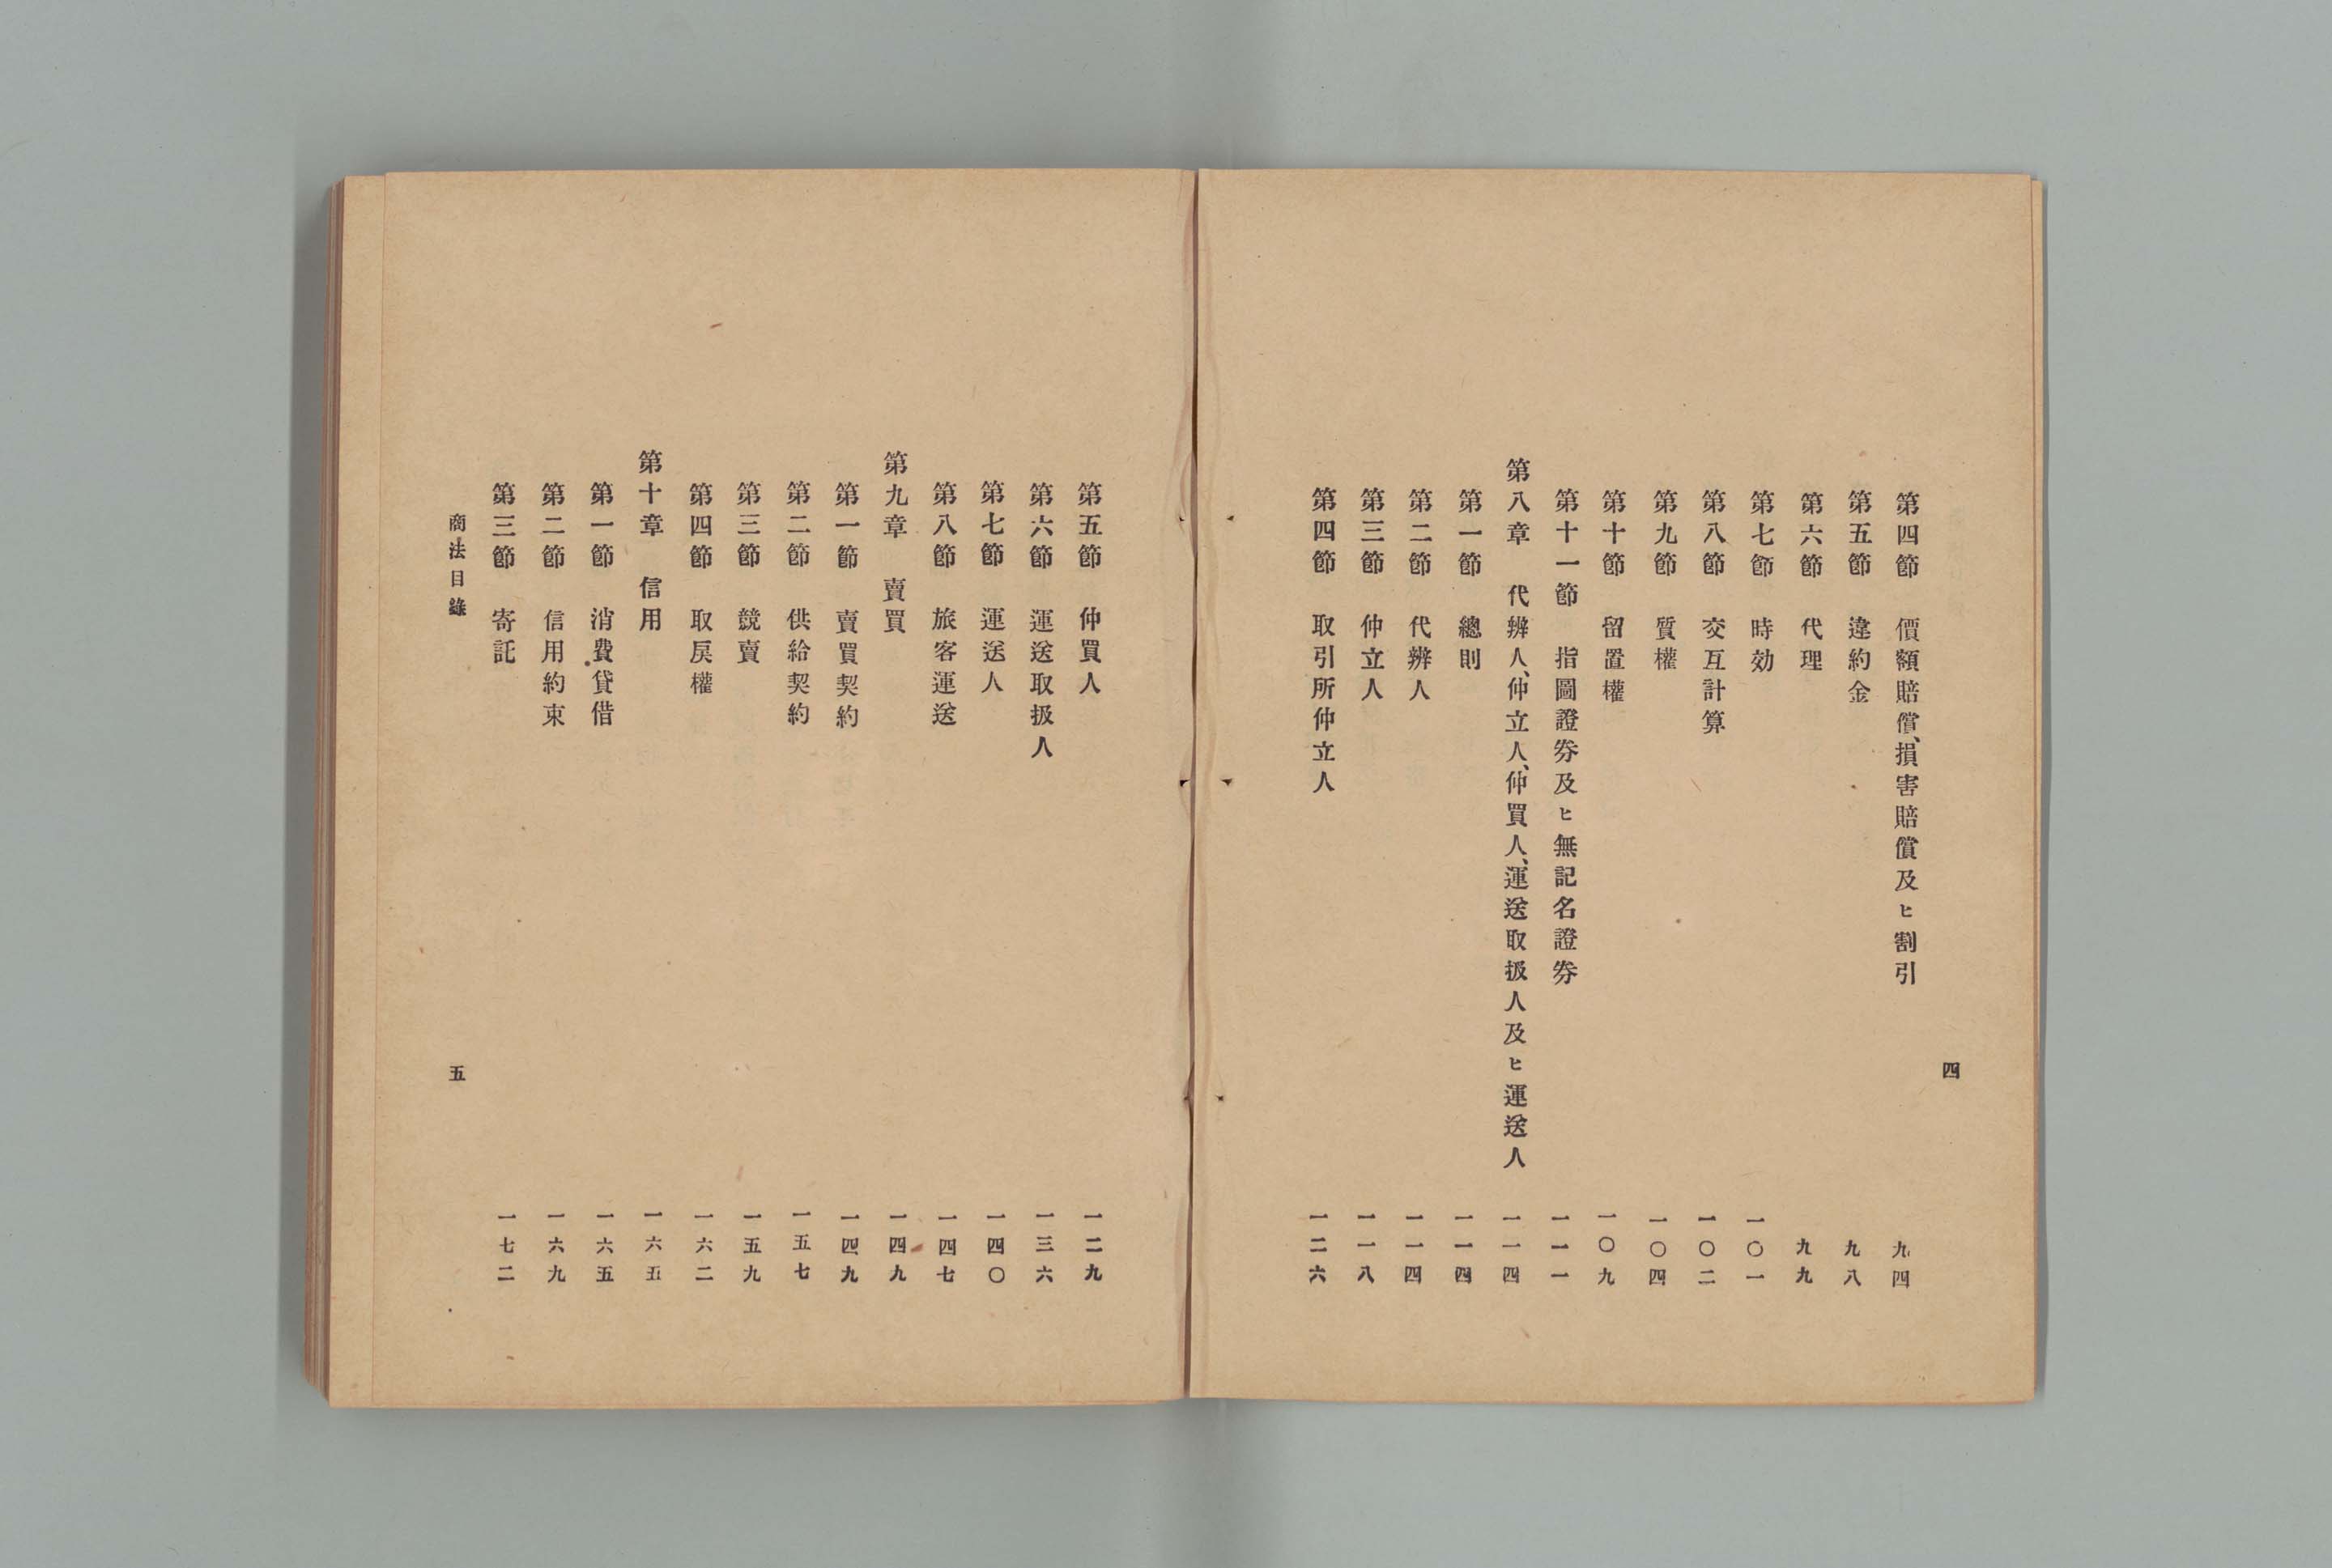 四
第四節　價額賠償、損害賠償及ヒ割引　九四
第五節　違約金　九八
第六節　代理　九九
第七節　時効　一〇一
第八節　交互計算　一〇二
第九節　質權　一〇四
第十節　留置權　一〇九
第十一節　指圖證券及ヒ無記名證券　一一一
第八章　代辨人、仲立人、仲買人、運送取扱人及ヒ運送人　一一四
第一節　總則　一一四
第二節　代辨人　一一四
第三節　仲立人　一一八
第四節　取引所仲立人　一二六
第五節　仲買人　一二九
第六節　運送取扱人　一三六
第七節　運送人　一四〇
第八節　旅客運送　一四七
第九章　賣買　一四九
第一節　賣買契約　一四九
第二節　供給契約　一五七
第三節　競賣　一五九
第四節　取戾權　一六二
第十章　信用　一六五
第一節　消費貸借　一六五
第二節　信用約束　一六九
第三節　寄託　一七二
商法目錄　五